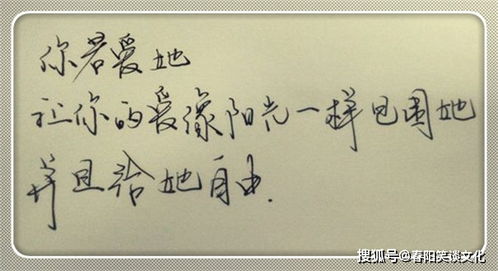 你若爱她
让你的爱像阳光一样包围她
并且给她自由.
搜狐号@春阳笑谈文化